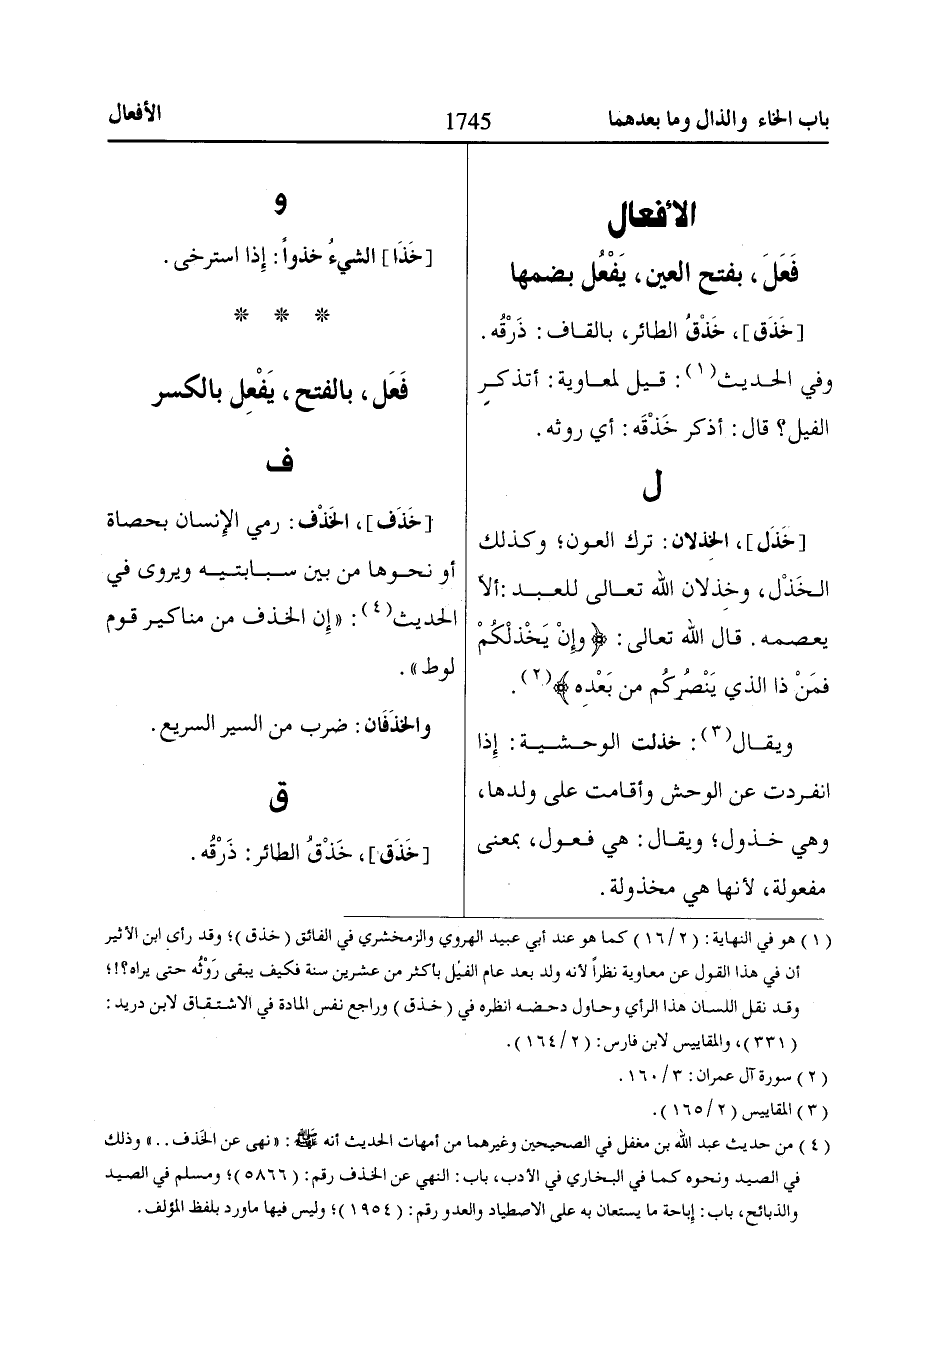 باب الخاء والذال وما بعدهما
1745
الأفعال
الأفعال
فَعَلَ، بفتح العين، يَفْعُل بضمها
[خَذَق]، خَذْقُ الطائر، بالقاف: ذَرْقُه.
وفي الحديث(١): قيل لمعاوية: أتذكر
الفيل؟ قال: أذكر خَذْقَه: أي روثه.
ل
[خَذَل]، الخذلان: ترك العون؛ وكذلك
الخَذْل، وخذلان الله تعالى للعبد: ألاّ
يعصمه. قال الله تعالى: ﴿وإنْ يَخْذلْكُمْ
فمَنْ ذا الذي يَنْصُرُكُم من بَعْده﴾(٢).
ويقال(٣): خذلت الوحشية: إذا
انفردت عن الوحش وأقامت على ولدها،
وهي خذول؛ ويقال: هي فعول، بمعنى
مفعولة، لأنها هي مخذولة.
و
[خَذَا] الشيءُ خذواً: إذا استرخى.
* * *
فَعَل، بالفتح، يَفْعِل بالكسر
ف
[خَذَف]، الخَذْف: رمي الإنسان بحصاة
أو نحوها من بين سبابتيه ويروى في
الحديث(٤): «إن الخذف من مناكير قوم
لوط».
والخذَفَان: ضرب من السير السريع.
ق
[خَذَق]، خَذْقُ الطائر: ذَرْقُه.
(١) هو في النهاية: (١٦/٢) كما هو عند أبي عبيد الهروي والزمخشري في الفائق (خذق)؛ وقد رأى ابن الأثير
أن في هذا القول عن معاوية نظراً لأنه ولد بعد عام الفيل بأكثر من عشرين سنة فكيف يبقى رَوْثُه حتى يراه؟!؛
وقد نقل اللسان هذا الرأي وحاول دحضه انظره في (خذق) وراجع نفس المادة في الاشتقاق لابن دريد:
(٣٣١)، والمقاييس لابن فارس: (١٦٤/٢).
(٢) سورة آل عمران: ٣/١٦٠.
(٣) المقاييس (١٦٥/٢).
(٤) من حديث عبد الله بن مغفل في الصحيحين وغيرهما من أمهات الحديث أنه ﷺ: «نهى عن الخَذف..» وذلك
في الصيد ونحوه كما في البخاري في الأدب، باب: النهي عن الخذف رقم: (٥٨٦٦)؛ ومسلم في الصيد
والذبائح، باب: إباحة ما يستعان به على الاصطياد والعدو رقم: (١٩٥٤)؛ وليس فيها ماورد بلفظ المؤلف.